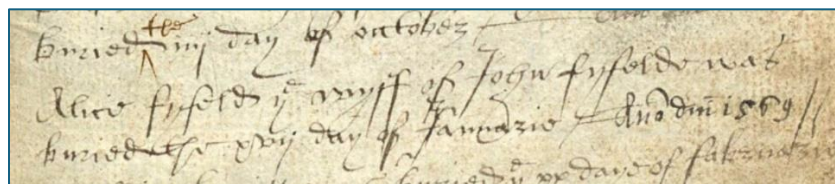 buried the iiij day of october
Alice fyfeld yͤ wyff of John fyfelde was
buried the xvij day of Januarie Ano dni 1569
buried yͤ xx daye of